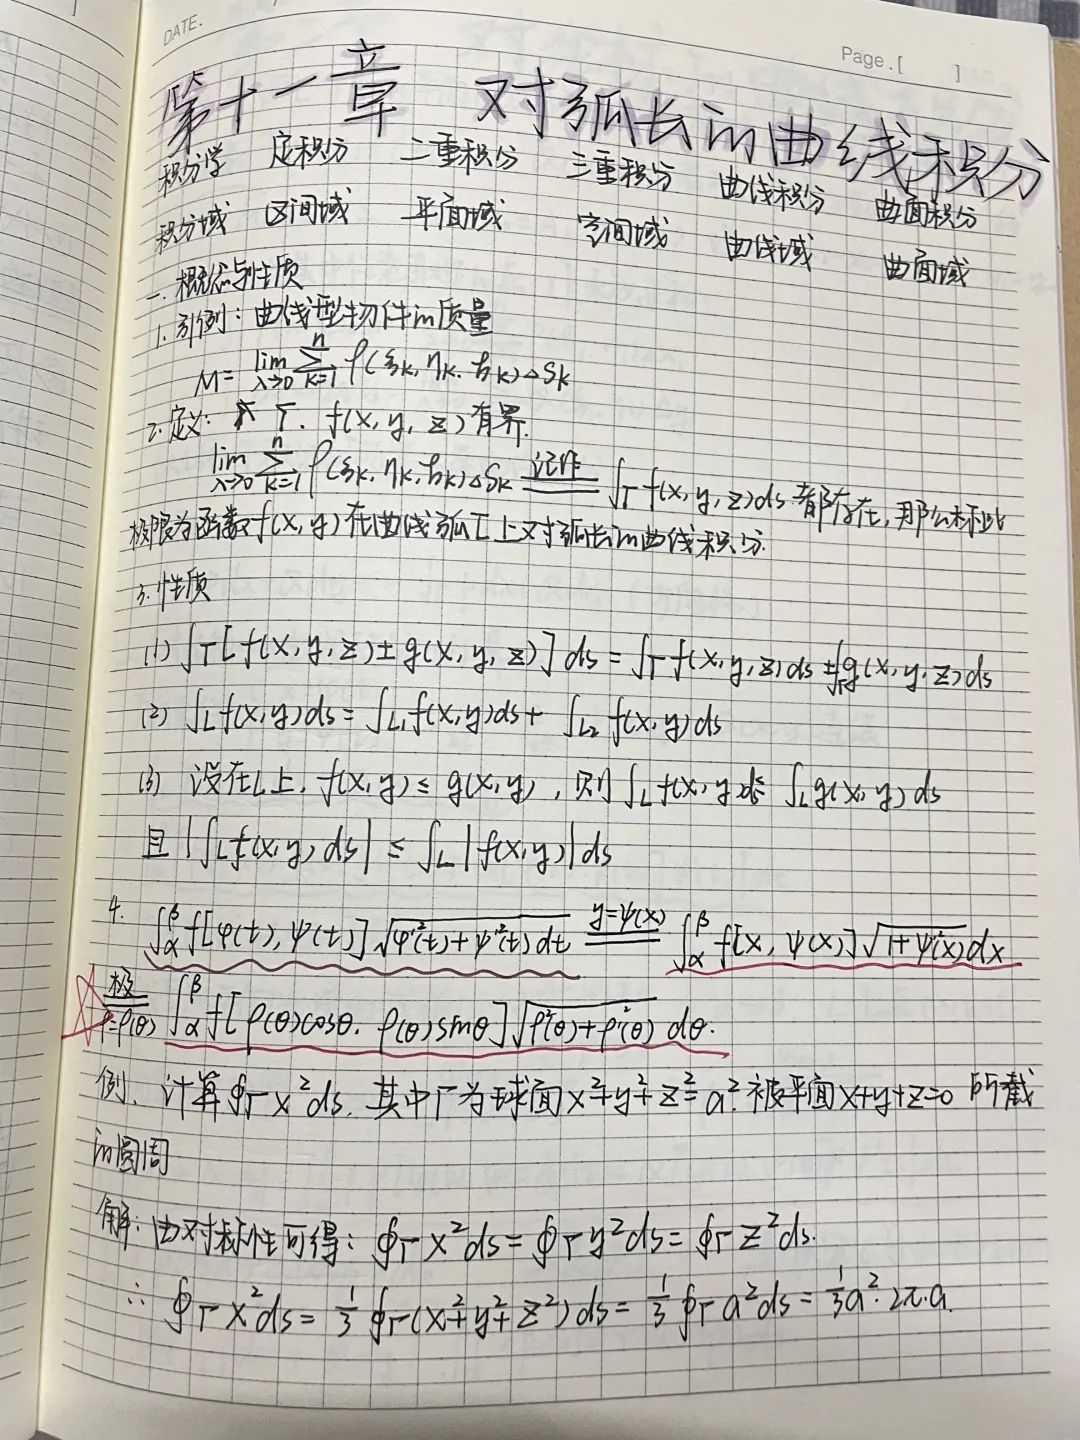 DATE.
Page.[ ]
第十一章 对弧长的曲线积分
积分学 定积分 二重积分 三重积分 曲线积分 曲面积分
积分域 区间域 平面域 空间域 曲线域 曲面域
一、概念与性质
1. 引例：曲线型物件的质量
M= lim λ→0 ∑ⁿ k=1 ρ(ξk, ηk, ζk)△Sk
2. 定义： Γ. f(x, y, z)有界.
lim λ→0 ∑ⁿ k=1 ρ(ξk, ηk, ζk)△Sk 记作 ∫Γ f(x, y, z)ds 都存在, 那么称此
极限为函数f(x, y)在曲线弧Γ上对弧长的曲线积分.
3. 性质
(1) ∫Γ[f(x, y, z)±g(x, y, z)]ds = ∫Γ f(x, y, z)ds ± ∫Γ g(x, y, z)ds
(2) ∫L f(x, y)ds = ∫L₁ f(x, y)ds + ∫L₂ f(x, y)ds
(3) 设在L上, f(x, y) ≤ g(x, y), 则 ∫L f(x, y ds ≤ ∫L g(x, y)ds
且 |∫L f(x, y)ds| ≤ ∫L |f(x, y)|ds
4. ∫αβ f[φ(t), ψ(t)]√φ'²(t)+ψ'²(t) dt y=ψ(x) ∫αβ f[x, ψ(x)]√1+ψ'²(x) dx
极 ρ=ρ(θ) ∫αβ f[ρ(θ)cosθ, ρ(θ)sinθ]√ρ²(θ)+ρ'²(θ) dθ.
例. 计算∮Γ x²ds. 其中Γ为球面x²+y²+z²=a².被平面x+y+z=0 所截
的圆周
解: 由对称性可得: ∮Γ x²ds = ∮Γ y²ds = ∮Γ z²ds.
∴ ∮Γ x²ds = 1/3 ∮Γ (x²+y²+z²)ds = 1/3 ∮Γ a²ds = 1/3 a²·2π·a.